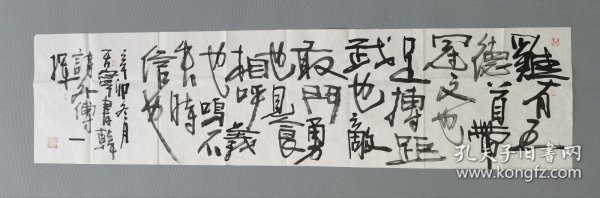 雞有五
德首帶
冠文也
足搏距
武也敵
敢鬥勇
也見食
相呼義
也鳴不
失時
信也
辛卯冬月
書韓
詩外傳一
孔夫子旧书网
www.kongfz.com